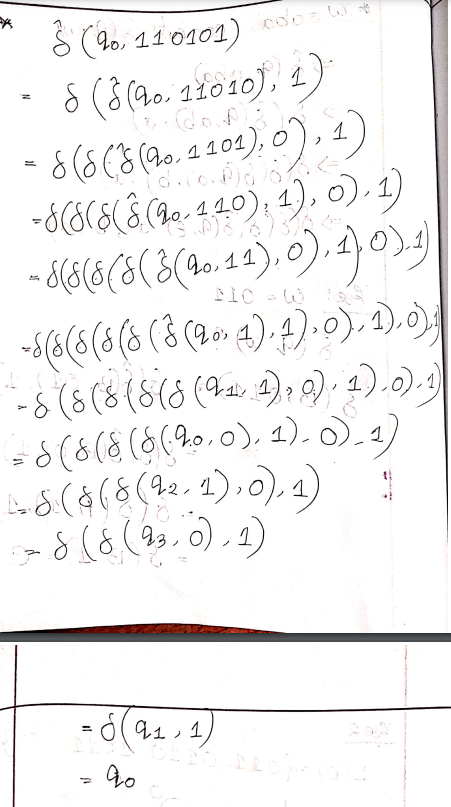 * δ̂(q₀, 110101)
= δ(δ̂(q₀, 11010), 1)
= δ(δ(δ̂(q₀, 1101), 0), 1)
= δ(δ(δ(δ̂(q₀, 110), 1), 0), 1)
= δ(δ(δ(δ(δ̂(q₀, 11), 0), 1), 0), 1)
= δ(δ(δ(δ(δ(δ̂(q₀, 1), 1), 0), 1), 0), 1
= δ(δ(δ(δ(δ(q₁, 1), 0), 1), 0), 1)
= δ(δ(δ(δ(q₀, 0), 1), 0), 1)
= δ(δ(δ(q₂, 1), 0), 1)
= δ(δ(q₃, 0), 1)
= δ(q₁, 1)
= q₀